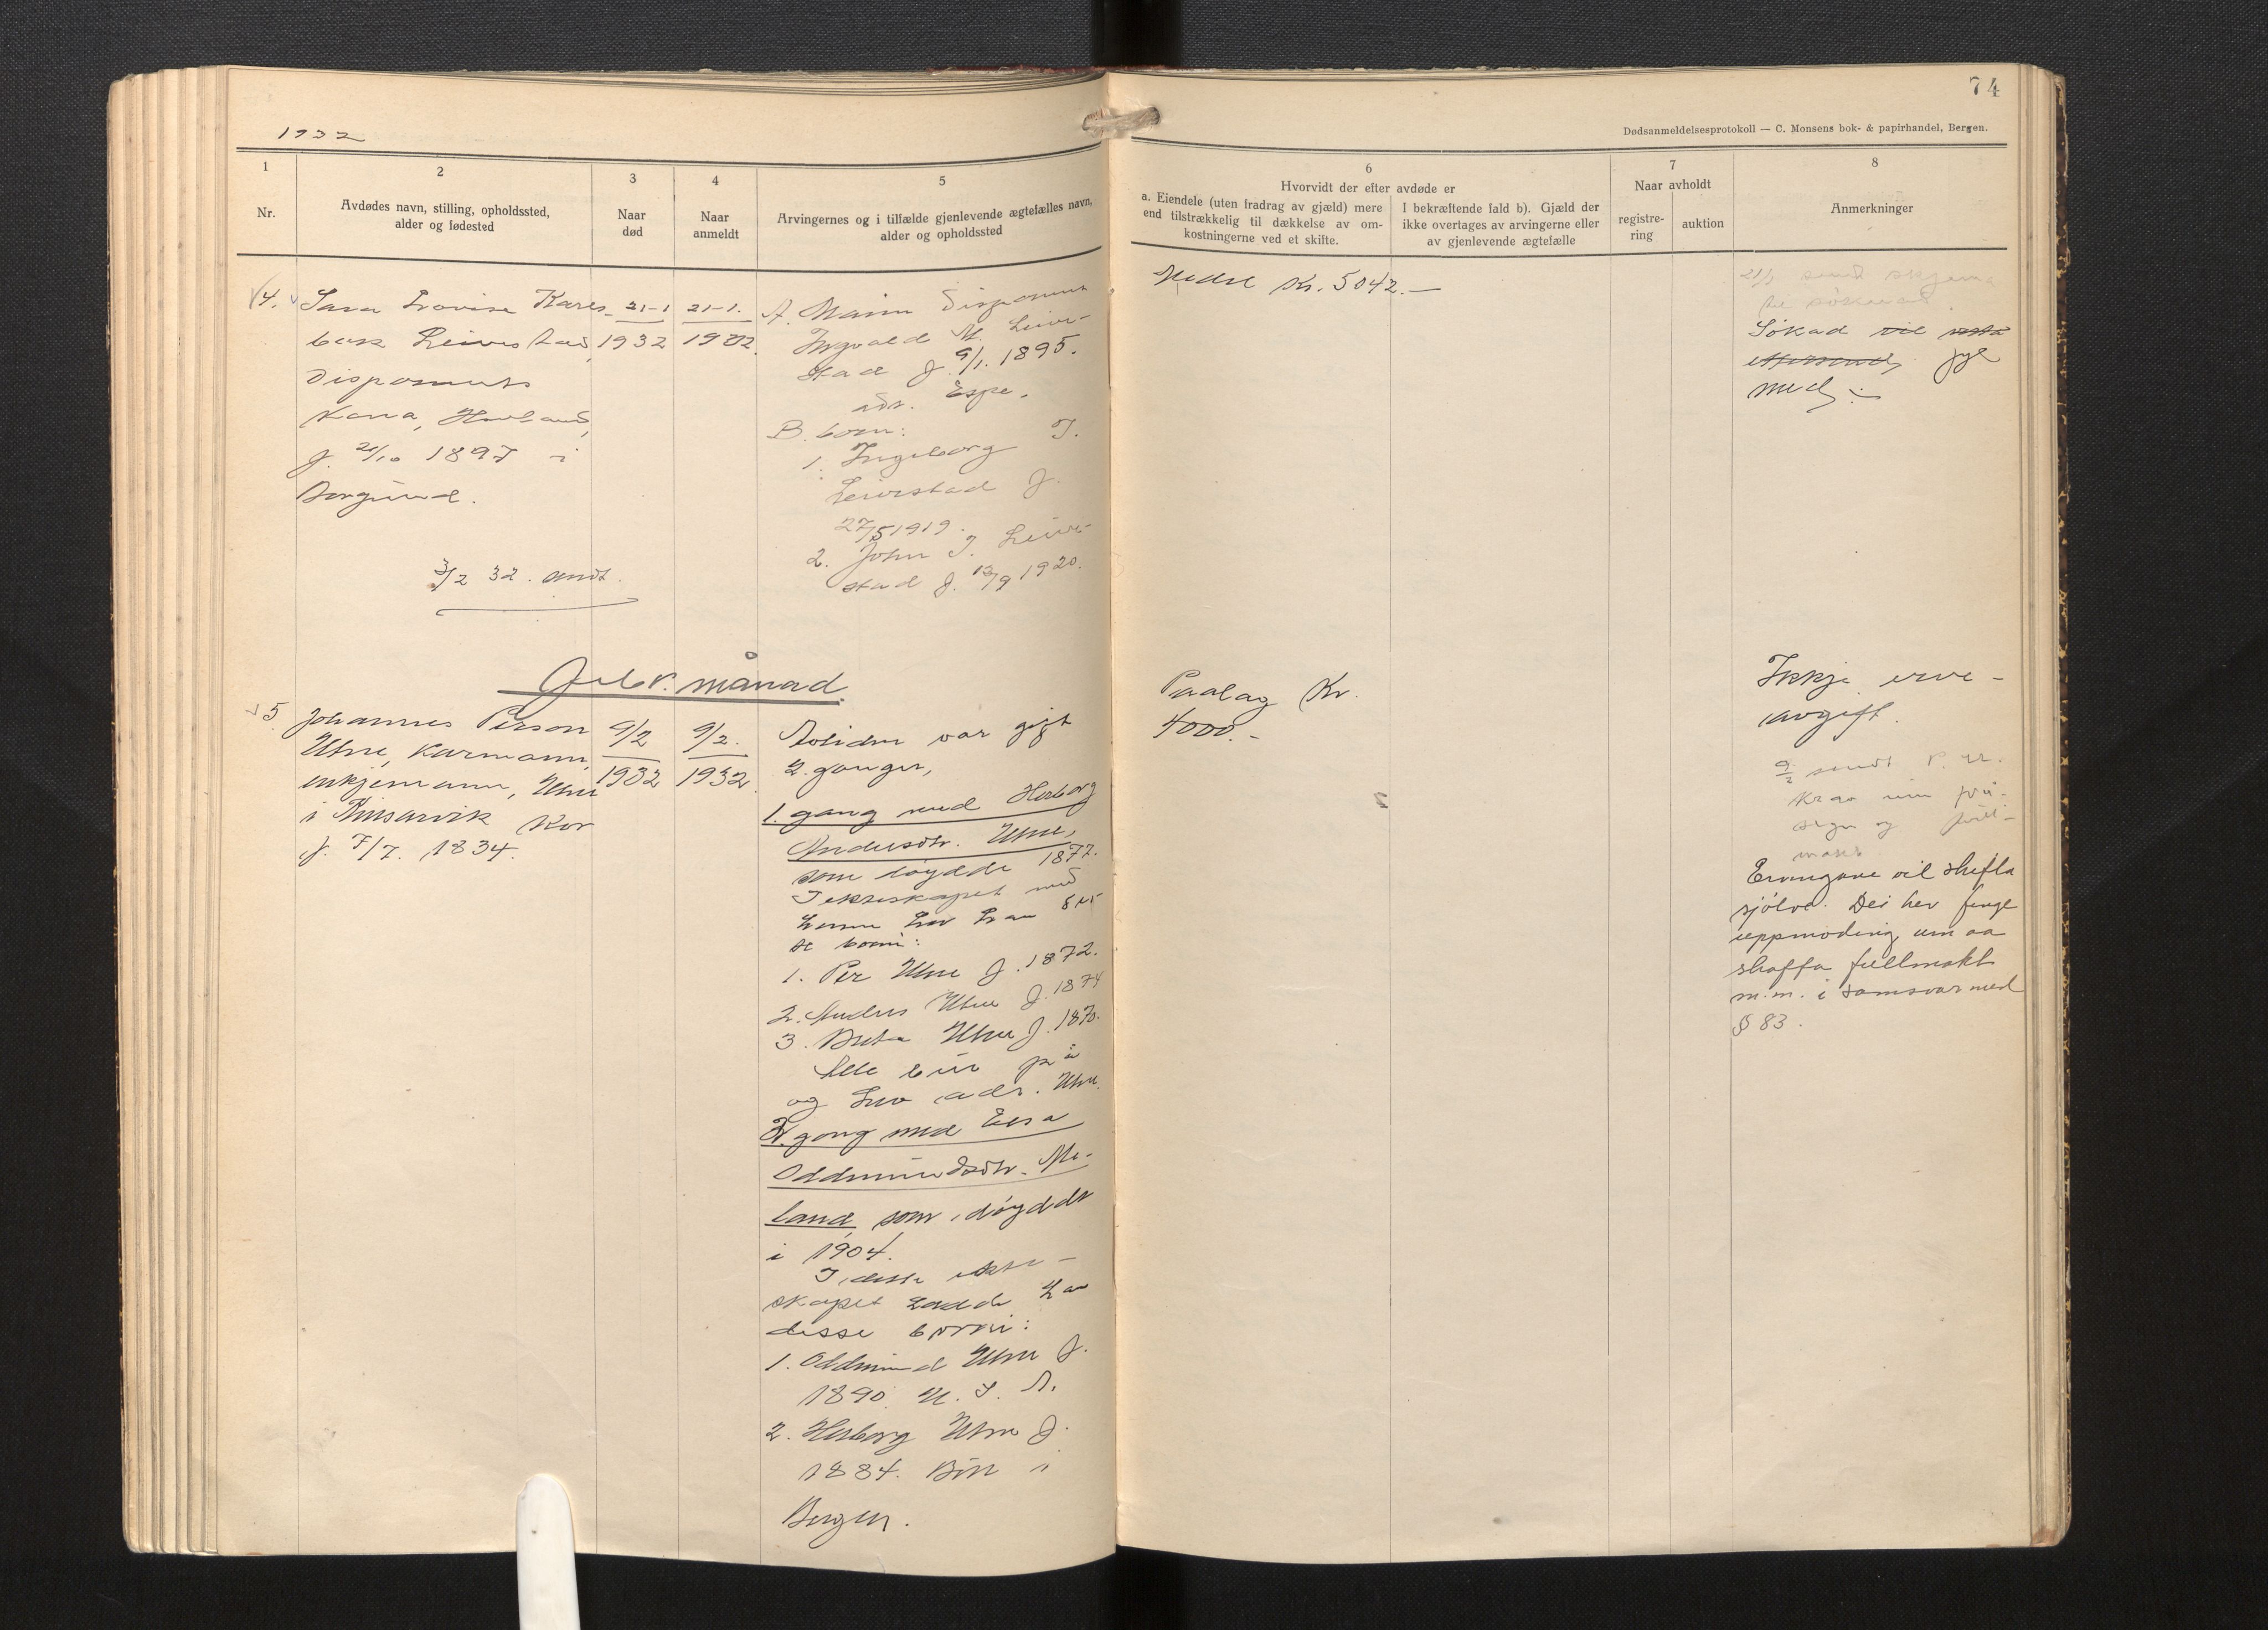 74
Dødsanmeldelsesprotokoll — C. Monsens bok- & papirhandel, Bergen.
1932
1
Nr.
2
Avdødes navn, stilling, opholdssted,
alder og fødested
3
Naar
død
4
Naar
anmeldt
5
Arvingernes og i tilfælde gjenlevende ægtefælles navn,
alder og opholdssted
6
Hvorvidt der efter avdøde er
a. Eiendele (uten fradrag av gjæld) mere
end tilstrækkelig til dækkelse av om-
kostningerne ved et skifte.
I bekræftende fald b). Gjæld der
ikke overtages av arvingerne eller
av gjenlevende ægtefælle
7
Naar avholdt
registre-
ring
auktion
8
Anmerkninger
4.
Sara Lovise Kares-
buk Leivestad,
disponents
kona, Hovland,
f. 21/10 1897 i
Borgund.
3/2 32. andt.
21-1
1932
21-1.
1932.
A. Mann disponent
Ingvald M. Leive-
stad f. 9/1. 1895.
adr. Espe.
B. born:
1. Ingeborg I.
Leivestad f.
27/5 1919.
2. John I. Leive-
stad f. 13/9 1920.
Nedre Kr. 5042.—
21/1 sendt skjema
Søknad
med
Febr. månad.
5
Johannes Person
Utne, kårmann,
enkjemann, Utne
i Kinsarvik
f. 7/7. 1834.
9/2
1932
9/2.
1932
Avlidne var gift
2. ganger,
1. gang med Herborg
Andersdtr. Utne,
som døydde 1877.
I ekteskapet med
henne
born:
1. Per Utne f. 1872.
2. Anders Utne f. 1874
3. Brita Utne f. 1870.
Alle bur på
og hev adr. Utne.
2. gong med Elsa
Oddmundsdtr. Me-
land, som døydde
i 1904.
I dette ekte-
skapet hadde han
disse borni:
1. Oddmund Utne f.
1890. U. S. A.
2. Herborg Utne f.
1884. Bur i
Bergen.
Paalag Kr.
4000.-
Ikkje erve-
avgift.
9/2 sendt
krav um
og
Ervingane vil skifta
sjølve. Dei hev fenge
uppmoding um aa
skaffa fullmakt
m.m. i samsvar med
§ 83.